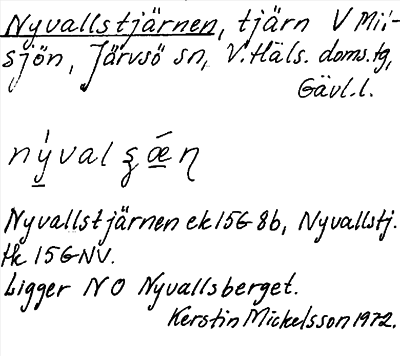 Nyvallstjärnen, tjärn V Mii-
sjön, Järvsö sn, V. Häls. doms. tg,
Gävl. l.
Nyvallstjärnen ek 15G 8b, Nyvallstj.
tk 15G NV.
Ligger NO Nyvallsberget.
Kerstin Mickelsson 1972.